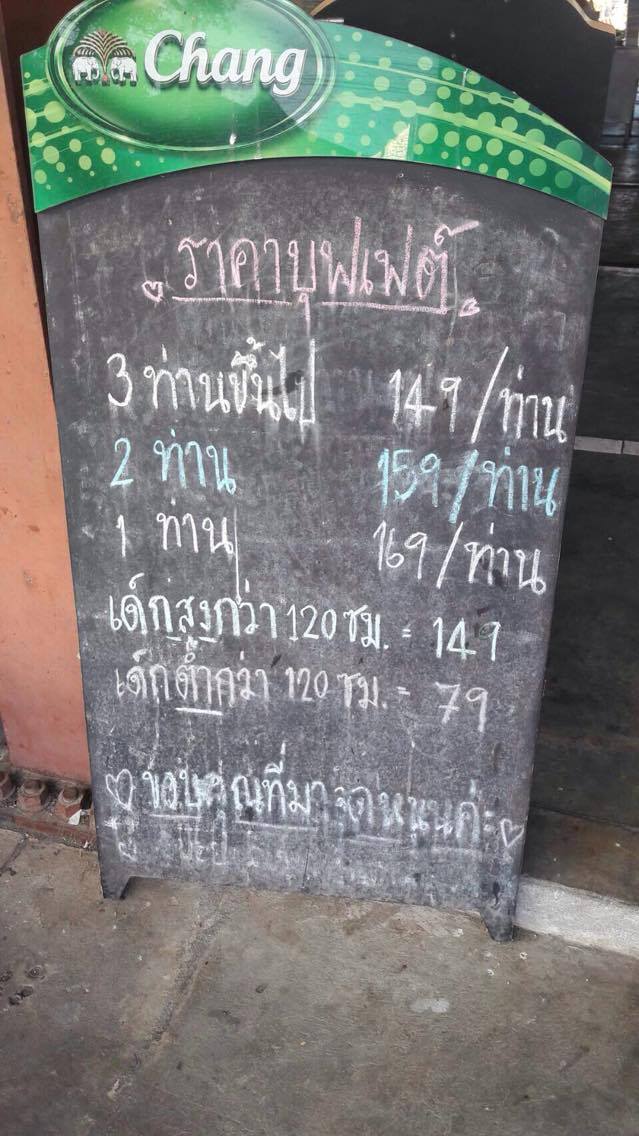 Chang
ราคาบุฟเฟต์
3 ท่านขึ้นไป 149/ท่าน
2 ท่าน 159/ท่าน
1 ท่าน 169/ท่าน
เด็กสูงกว่า 120 ซม. = 149
เด็กต่ำกว่า 120 ซม. = 79
ขอบคุณที่มาอุดหนุนค่ะ